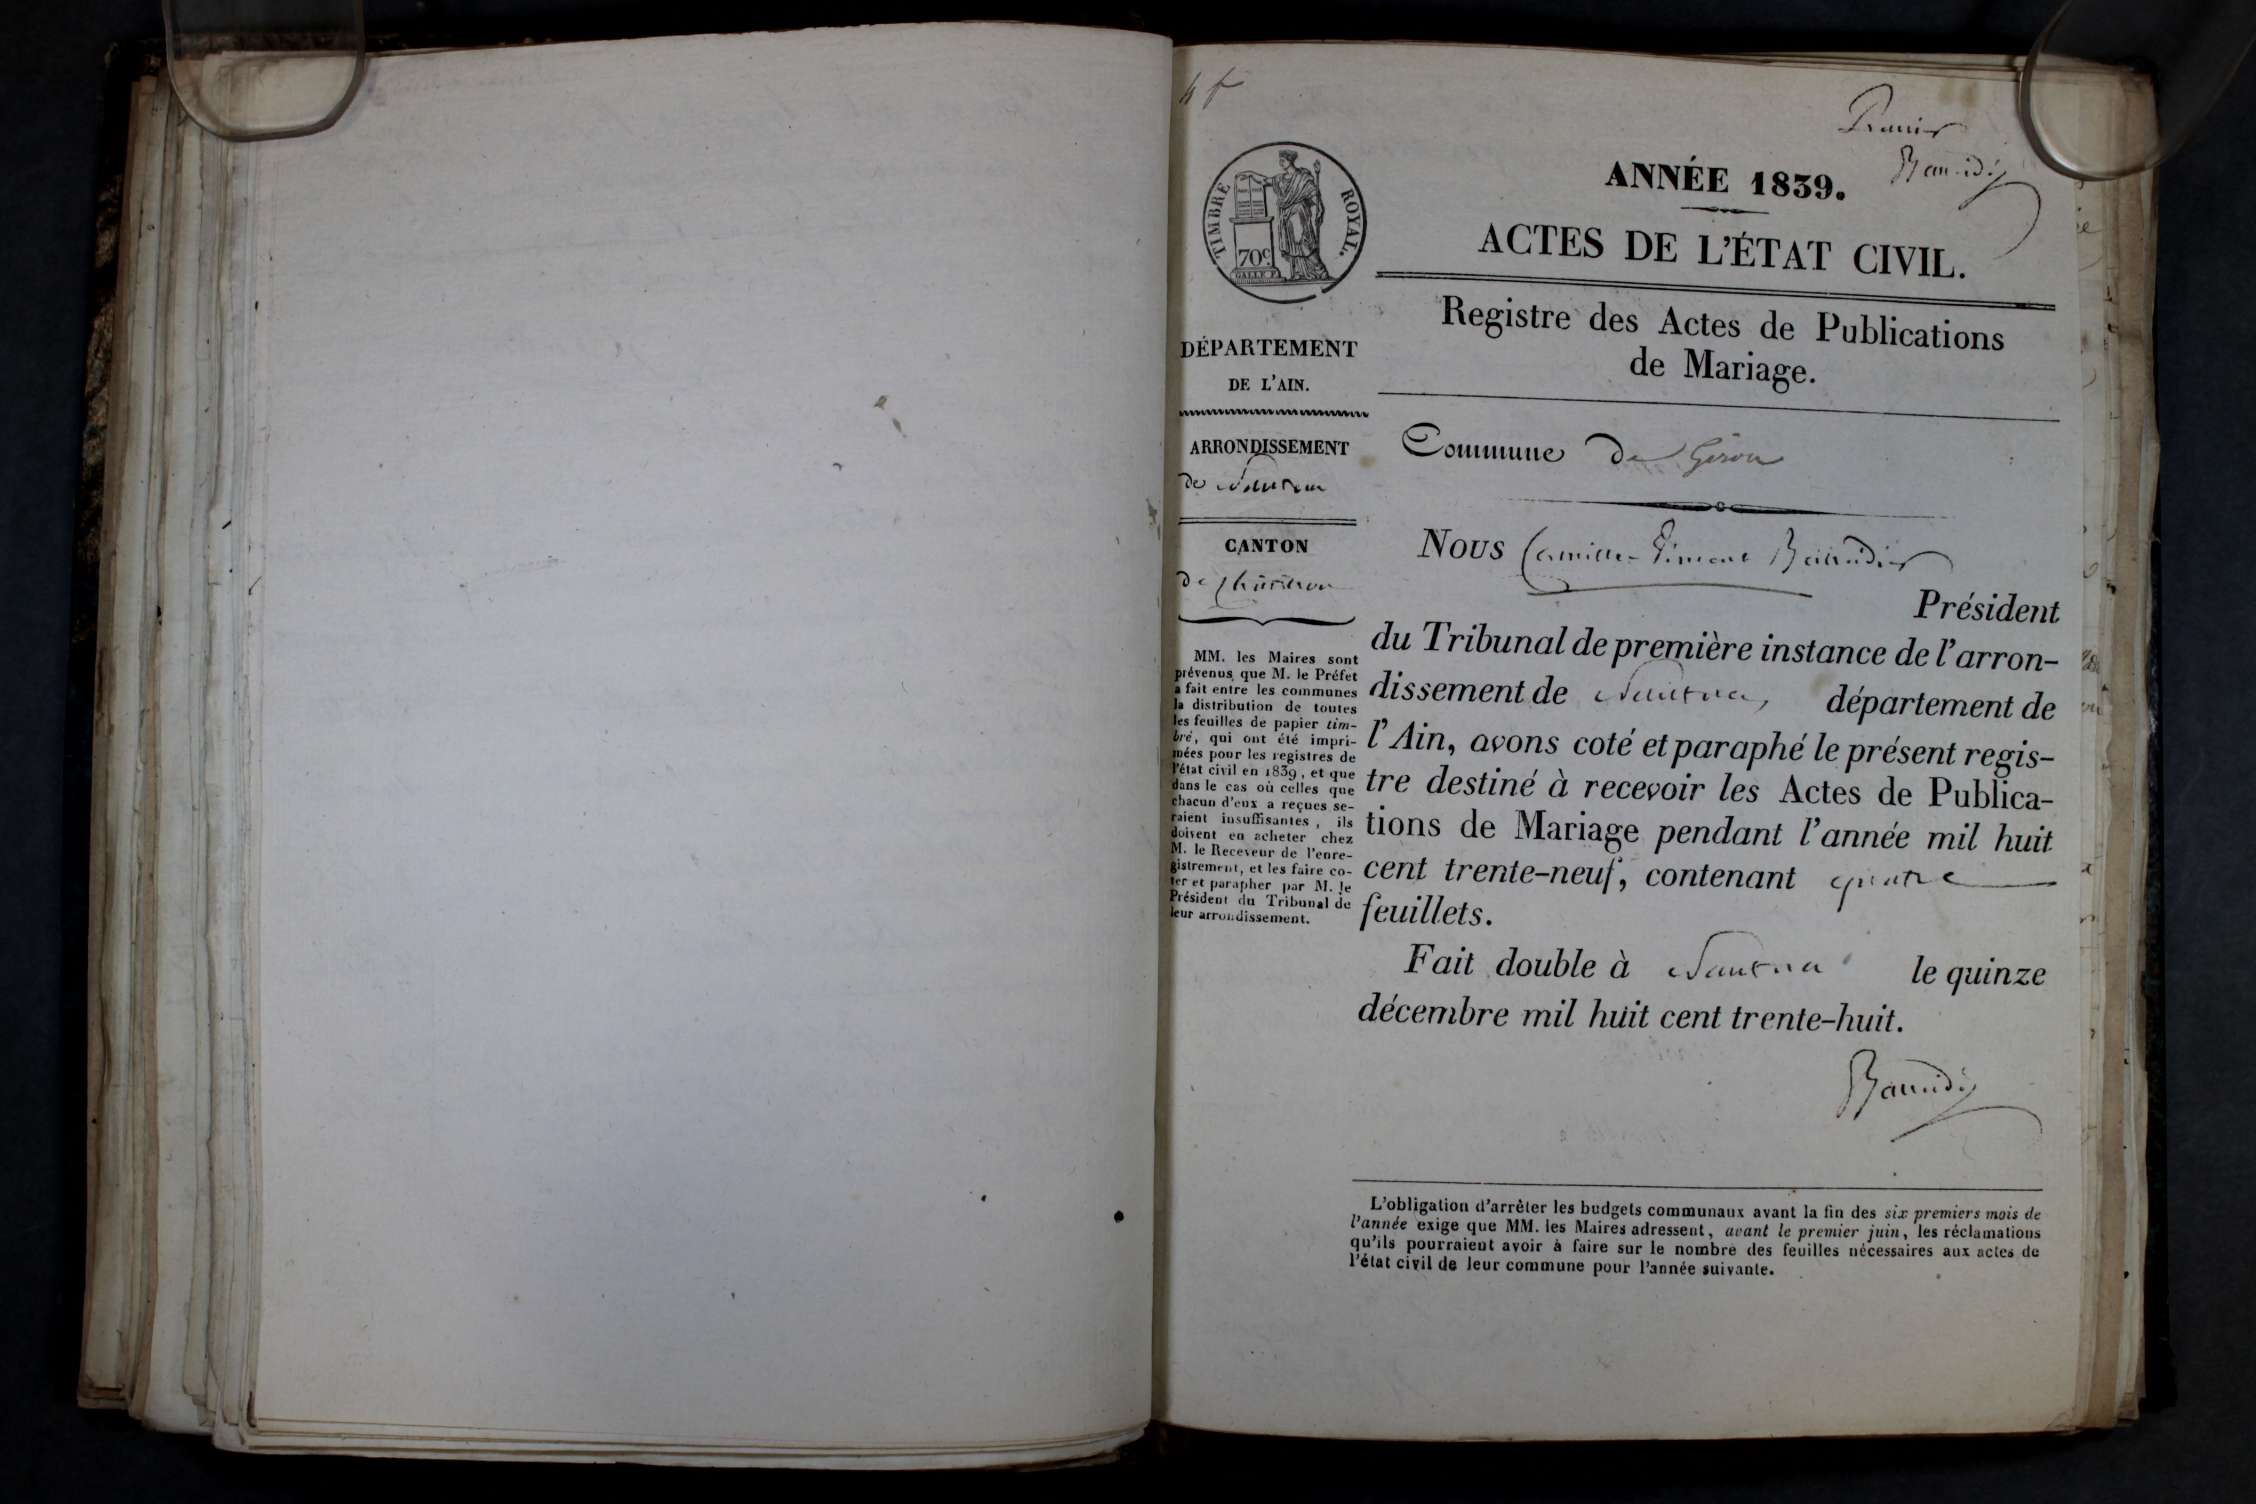 4 f
Premier
Baudier
TIMBRE ROYAL.
70c
GALLE F.
ANNÉE 1839.
ACTES DE L'ÉTAT CIVIL.
Registre des Actes de Publications
de Mariage.
DÉPARTEMENT
DE L'AIN.
ARRONDISSEMENT
de Nantua
CANTON
de Châtillon
MM. les Maires sont
prévenus que M. le Préfet
a fait entre les communes
la distribution de toutes
les feuilles de papier tim-
bré, qui ont été impri-
mées pour les registres de
l'état civil en 1839, et que
dans le cas où celles que
chacun d'eux a reçues se-
raient insuffisantes, ils
doivent en acheter chez
M. le Receveur de l'enre-
gistrement, et les faire co-
ter et parapher par M. le
Président du Tribunal de
leur arrondissement.
Commune de Giron
Nous Camille
Président
du Tribunal de première instance de l'arron-
dissement de Nantua, département de
l'Ain, avons coté et paraphé le présent regis-
tre destiné à recevoir les Actes de Publica-
tions de Mariage pendant l'année mil huit
cent trente-neuf, contenant quatre
feuillets.
Fait double à Nantua le quinze
décembre mil huit cent trente-huit.
L'obligation d'arrêter les budgets communaux avant la fin des six premiers mois de
l'année exige que MM. les Maires adressent, avant le premier juin, les réclamations
qu'ils pourraient avoir à faire sur le nombre des feuilles nécessaires aux actes de
l'état civil de leur commune pour l'année suivante.